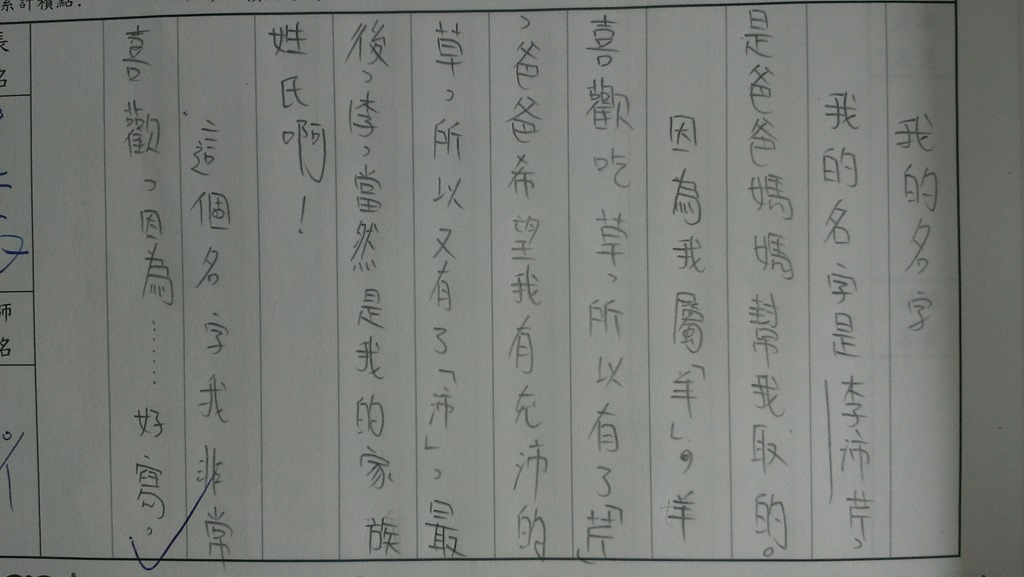 累計積點:
我的名字
我的名字是李沛芹,
是爸爸媽媽幫我取的。
因為我屬「羊」,羊
喜歡吃草,所以有了「芹」
,爸爸希望我有充沛的
草,所以又有了「沛」,最
後,李,當然是我的家族
姓氏啊!
這個名字我非常
喜歡,因為……好寫。
長
名
師
名